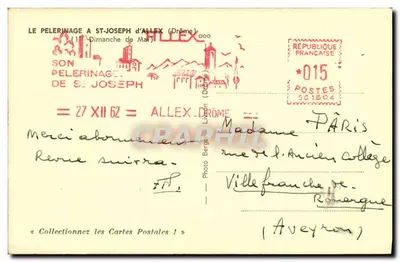 LE PELERINAGE A ST-JOSEPH d'ALLEX (Drôme)
(1er Dimanche de Mai)
ALLEX
SON
PELERINAGE
DE ST JOSEPH
RÉPUBLIQUE
FRANÇAISE
*015
POSTES
SC 1604
= 27 XII 62 = ALLEX-DRÔME =
Merci abonnement
Revue suivra.
Photo Livron (Drôme)
Madame PÂRIS
rue de l'Ancien Collège
Villefranche-de-
Rouergue
(Aveyron)
« Collectionnez les Cartes Postales ! »